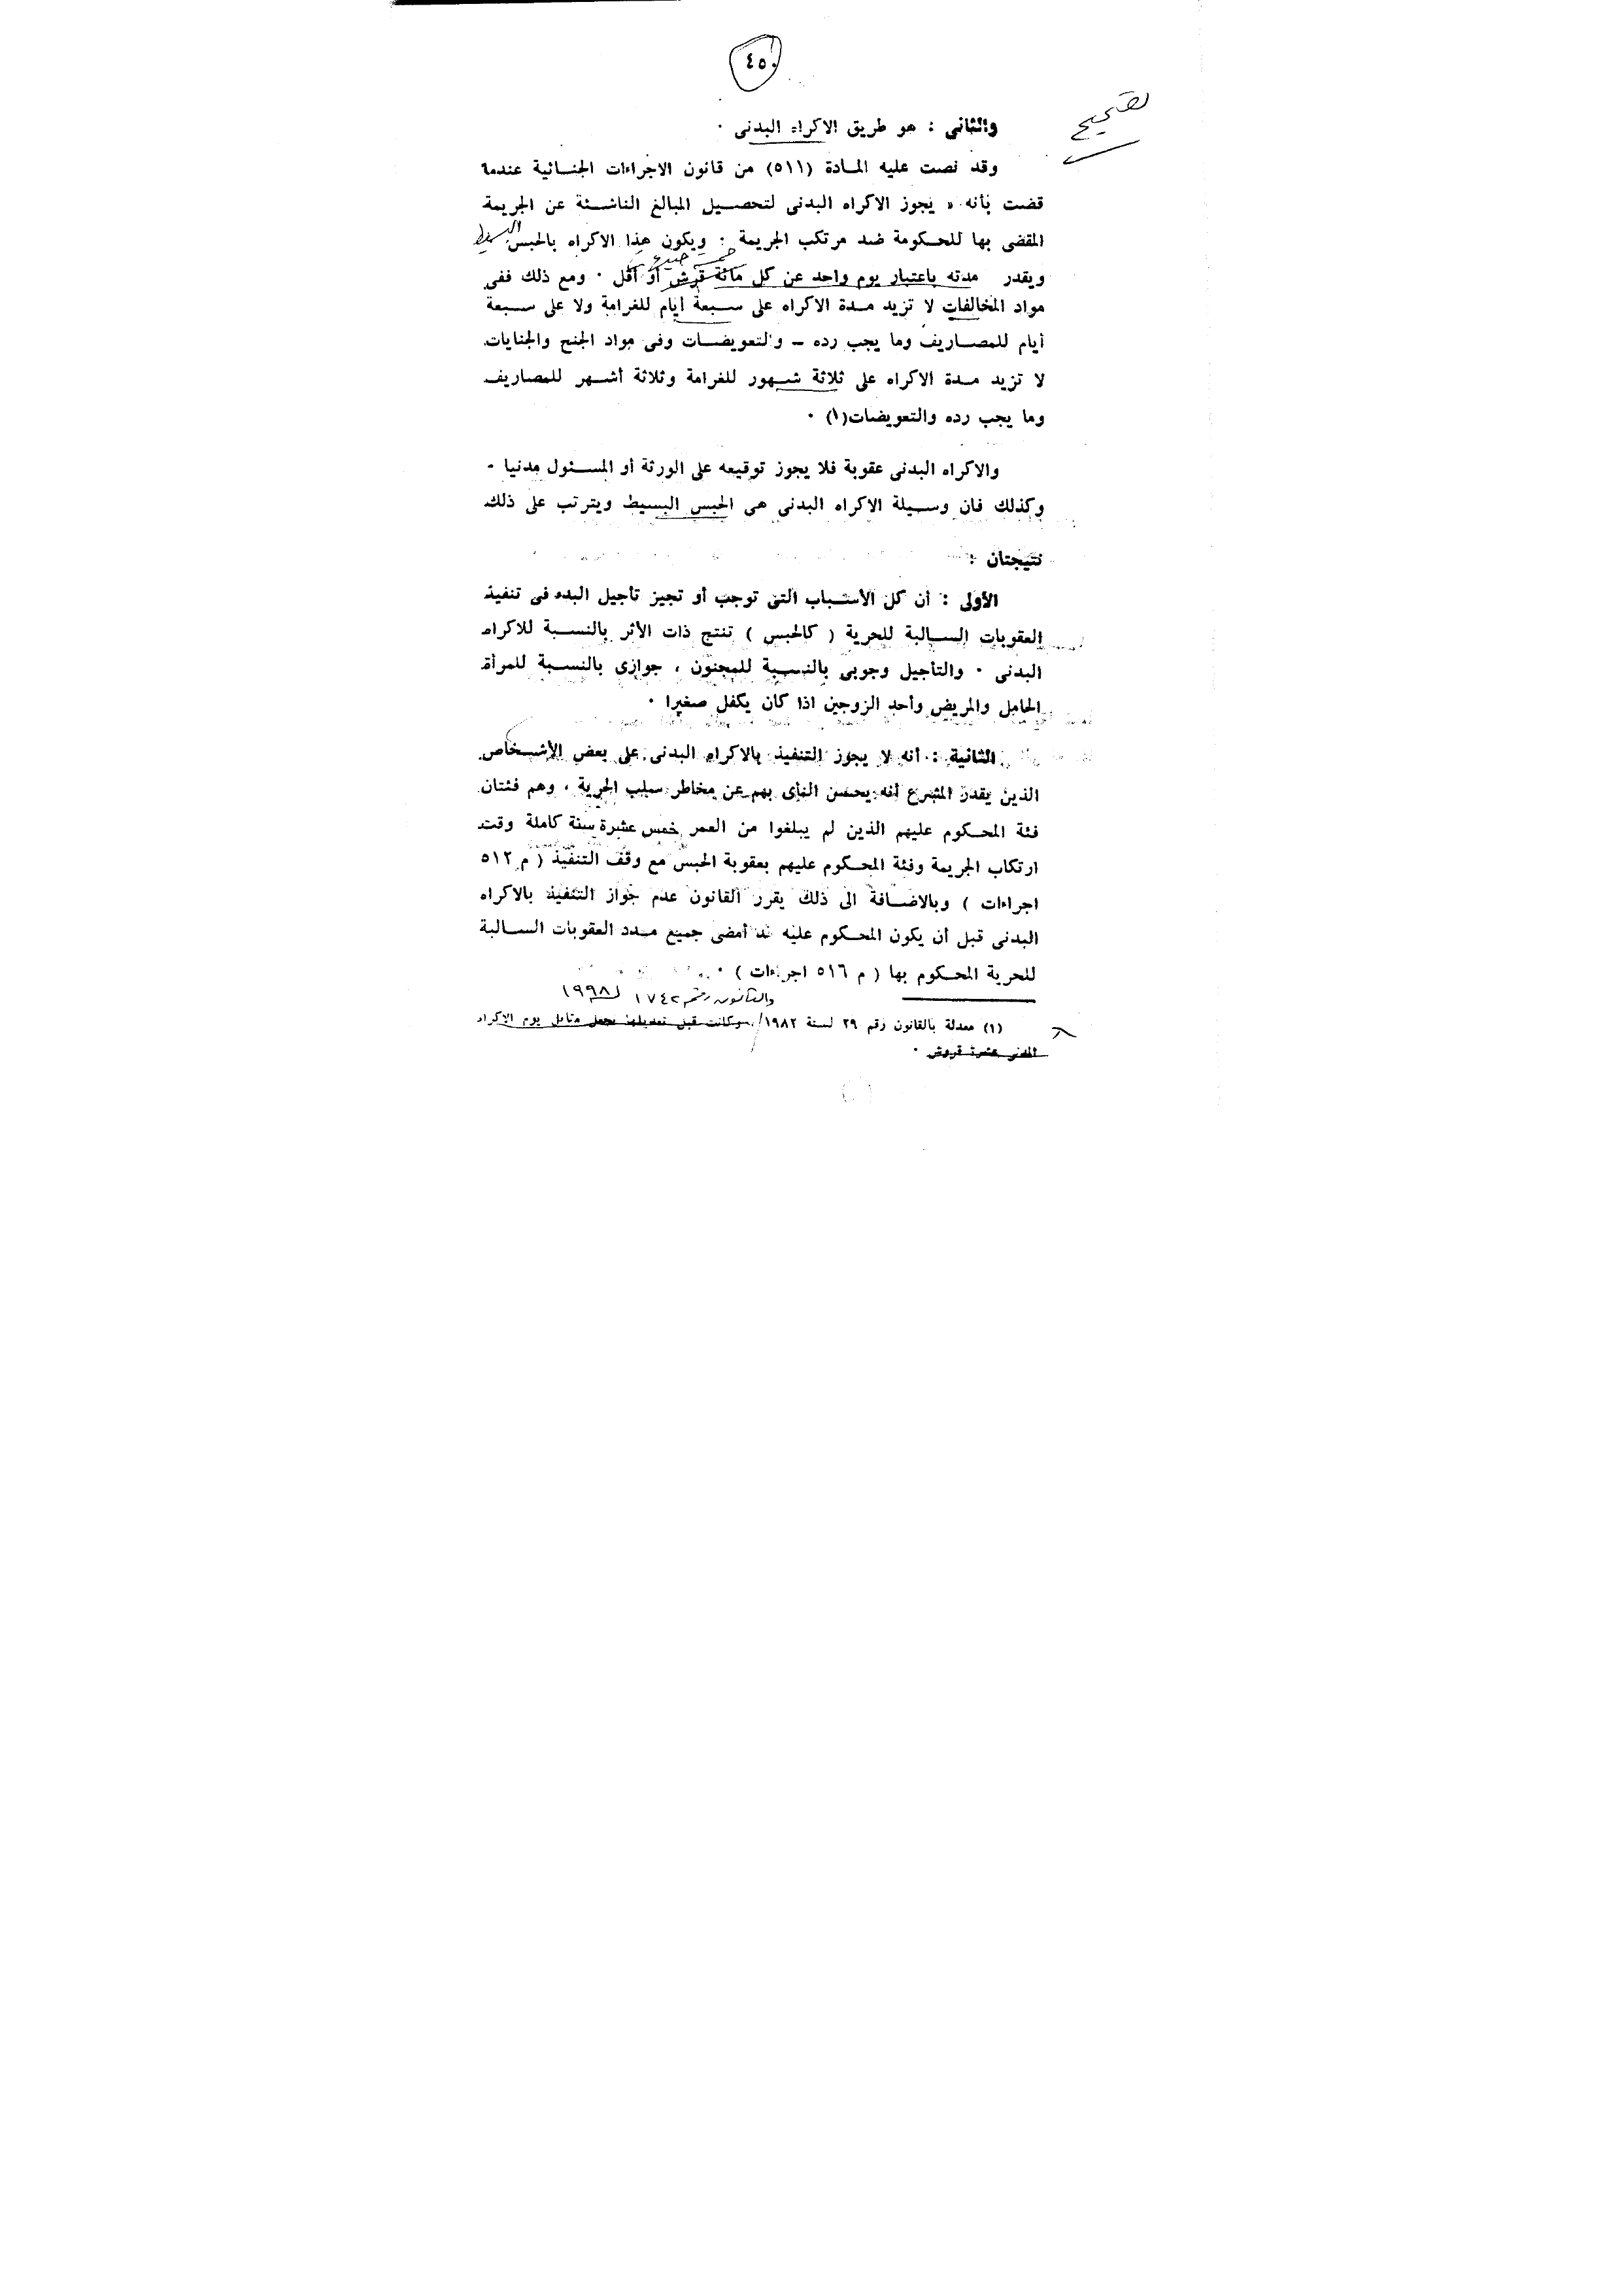 ٤٥٠
تصحيح
والثانى : هو طريق الاكراه البدنى ·
وقد نصت عليه المادة (٥١١) من قانون الاجراءات الجنائية عندما
قضت بأنه « يجوز الاكراه البدنى لتحصيل المبالغ الناشئة عن الجريمة
المقضى بها للحكومة ضد مرتكب الجريمة : ويكون هذا الاكراه بالحبس البسيط
ويقدر مدته باعتبار يوم واحد عن كل مائة قرش أو أقل · ومع ذلك ففى
خمسة جنيه
مواد المخالفات لا تزيد مدة الاكراه على سبعة أيام للغرامة ولا على سبعة
أيام للمصاريف وما يجب رده – والتعويضات وفى مواد الجنح والجنايات
لا تزيد مدة الاكراه على ثلاثة شهور للغرامة وثلاثة أشهر للمصاريف
وما يجب رده والتعويضات(١) ·
والاكراه البدنى عقوبة فلا يجوز توقيعه على الورثة أو المسئول مدنيا ·
وكذلك فان وسيلة الاكراه البدنى هى الحبس البسيط ويترتب على ذلك
نتيجتان :
الأولى : أن كل الأسباب التى توجب أو تجيز تأجيل البدء فى تنفيذ
العقوبات السالبة للحرية ( كالحبس ) تنتج ذات الأثر بالنسبة للاكراه
البدنى · والتأجيل وجوبى بالنسبة للمجنون ، جوازى بالنسبة للمرأة
الحامل والمريض وأحد الزوجين اذا كان يكفل صغيرا ·
الثانية : أنه لا يجوز التنفيذ بالاكراه البدنى على بعض الأشخاص
الذين يقدر المشرع أنه يحسن النأى بهم عن مخاطر سلب الحرية ، وهم فئتان
فئة المحكوم عليهم الذين لم يبلغوا من العمر خمس عشرة سنة كاملة وقت
ارتكاب الجريمة وفئة المحكوم عليهم بعقوبة الحبس مع وقف التنفيذ ( م ٥١٢
اجراءات ) وبالاضافة الى ذلك يقرر القانون عدم جواز التنفيذ بالاكراه
البدنى قبل أن يكون المحكوم عليه قد أمضى جميع مدد العقوبات السالبة
للحرية المحكوم بها ( م ٥١٦ اجراءات ) ·
والقانون رقم ١٧٤ لـ ١٩٩٨
(١) معدلة بالقانون رقم ٢٩ لسنة ١٩٨٢ وكانت قبل تعديلها تجعل مقابل يوم الاكراه
البدنى عشرة قروش ·